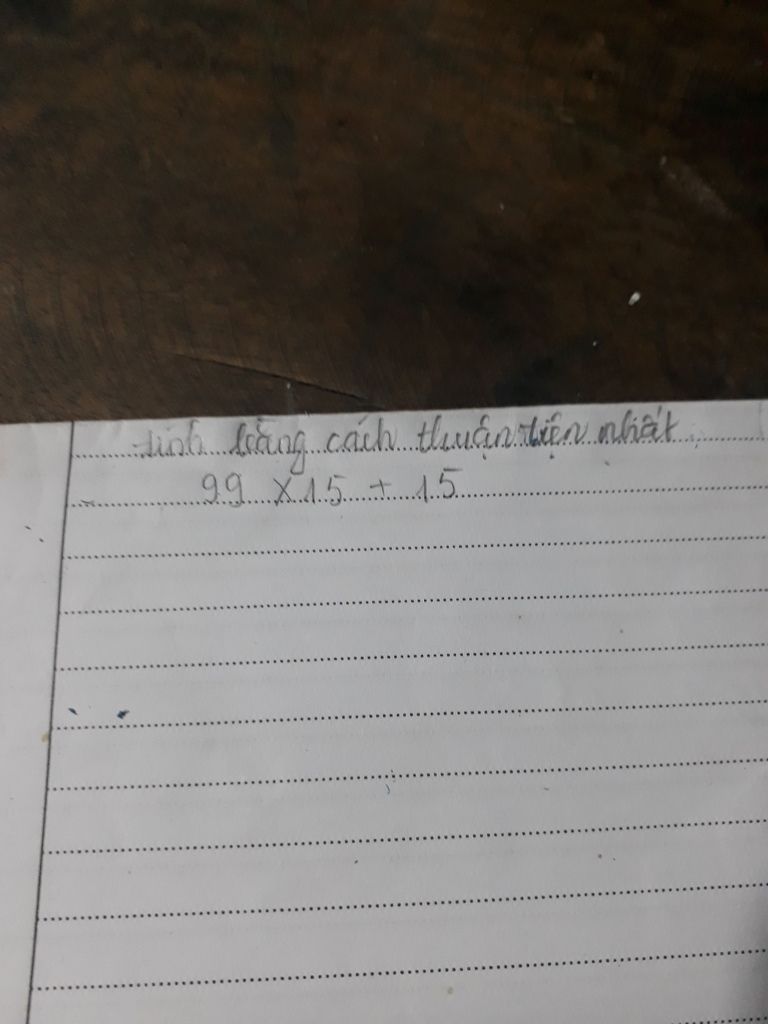 tính bằng cách thuận tiện nhất
99 x 15 + 15